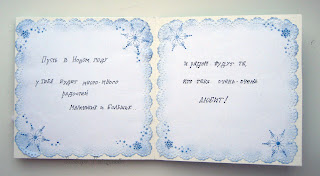 Пусть в Новом году
у тебя будет много-много
радостей
Маленьких и Больших
и рядом будут те,
кто тебя очень-очень
ЛЮБИТ!